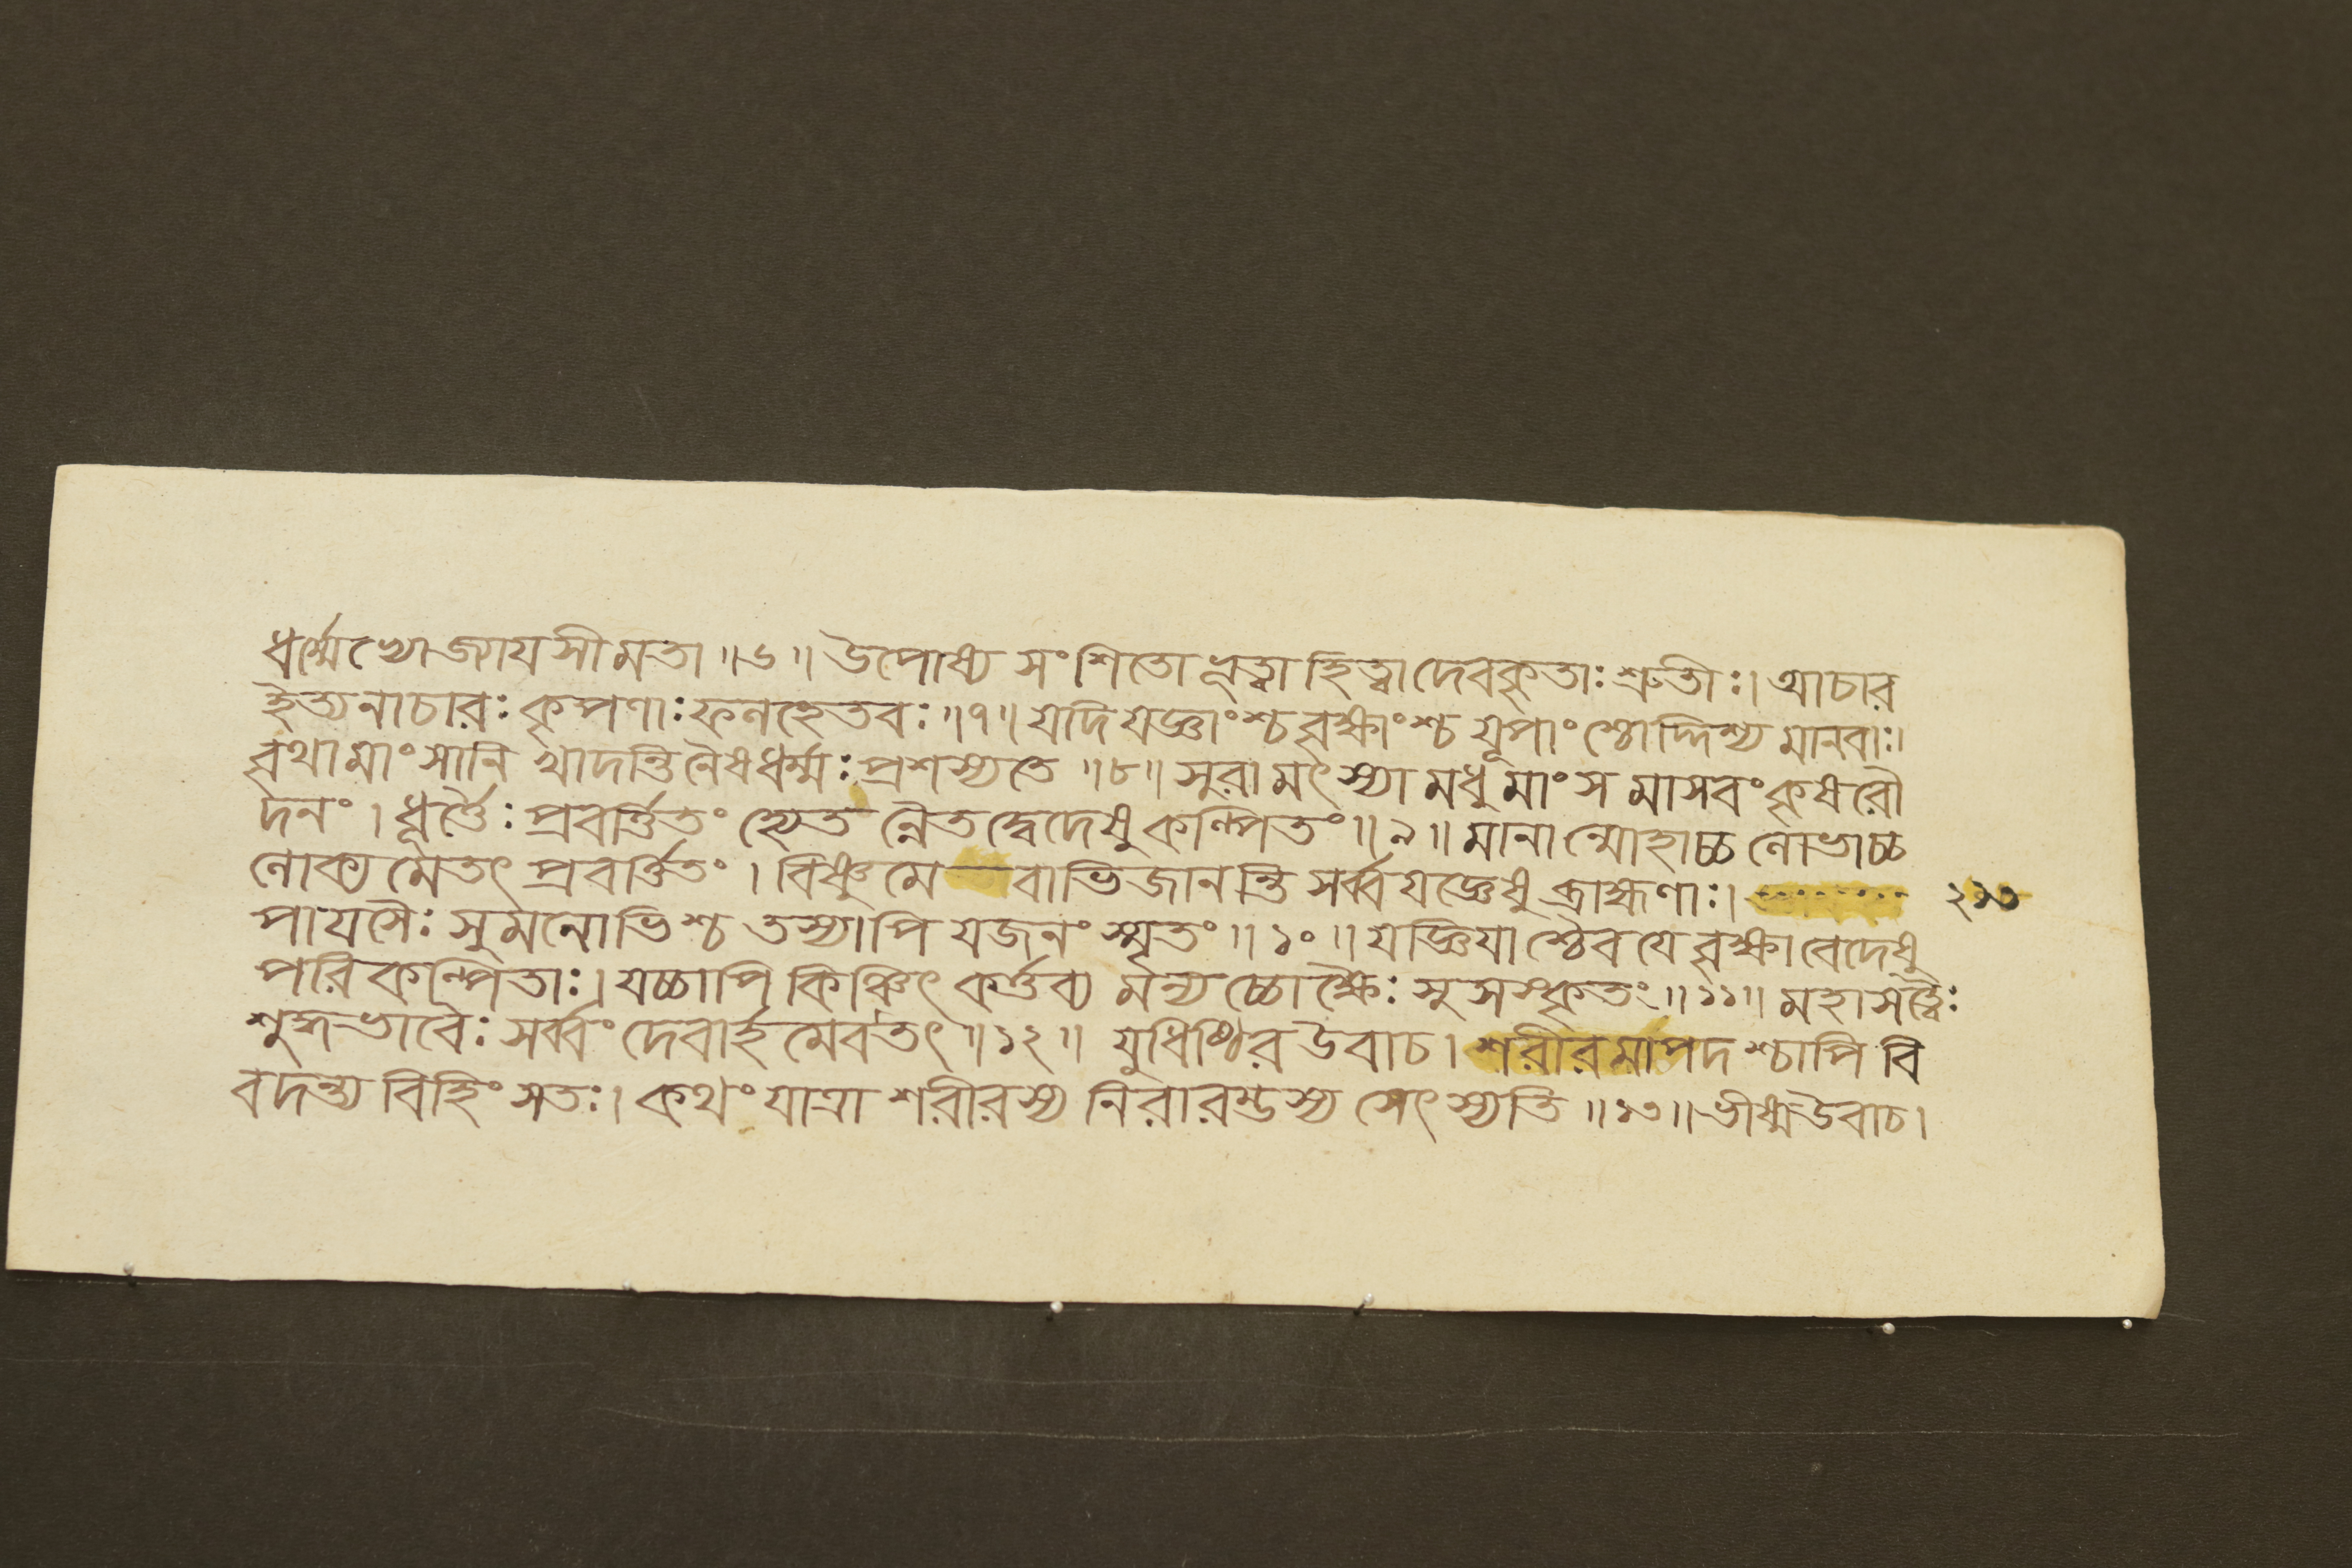 ধর্ম্মেভ্যো জ্যায়সী মতা ॥৬॥ উপোষ্য সংশিতো ভূত্বা হিত্বা দেবকৃতাঃ শ্রুতীঃ। আচার
ইত্যনাচারঃ কৃপণাঃ ফলহেতবঃ॥৭॥ যদি যজ্ঞাংশ্চ বৃক্ষাংশ্চ যূপাংশ্চোদ্দিশ্য মানবাঃ।
বৃথা মাংসানি খাদন্তি নৈষ ধর্ম্মঃ প্রশস্যতে ॥৮॥ সুরা মৎস্যা মধু মাংসমাসবং কৃষরৌ
দনং। ধূর্ত্তৈঃ প্রবর্ত্তিতং হ্যেতন্নৈতদ্বেদেষু কল্পিতং॥৯॥ মানান্মোহাচ্চ লোভাচ্চ
লোক্যমেতৎ প্রবর্ত্তিতং। বিষ্ণুমেবাভিজানন্তি সর্ব্বযজ্ঞেষু ব্রাহ্মণাঃ। ২১৩
পায়সৈঃ সুমনোভিশ্চ তস্যাপি যজনং স্মৃতং॥১০॥ যজ্ঞিয়াশ্চৈব যে বৃক্ষা বেদেষু
পরিকল্পিতাঃ। যচ্চাপি কিঞ্চিৎ কর্ত্তব্যমন্যচ্চোক্ষৈঃ সুসংস্কৃতং॥১১॥ মহাসত্ত্বৈঃ
শুদ্ধভাবৈঃ সর্ব্বং দেবার্হমেব তৎ॥১২॥ যুধিষ্ঠির উবাচ। শরীরমাপদশ্চাপি বি
বদন্ত্যবিহিংসতঃ। কথং যাত্রা শরীরস্য নিরারম্ভস্য সেৎস্যতি ॥১৩॥ ভীষ্ম উবাচ।